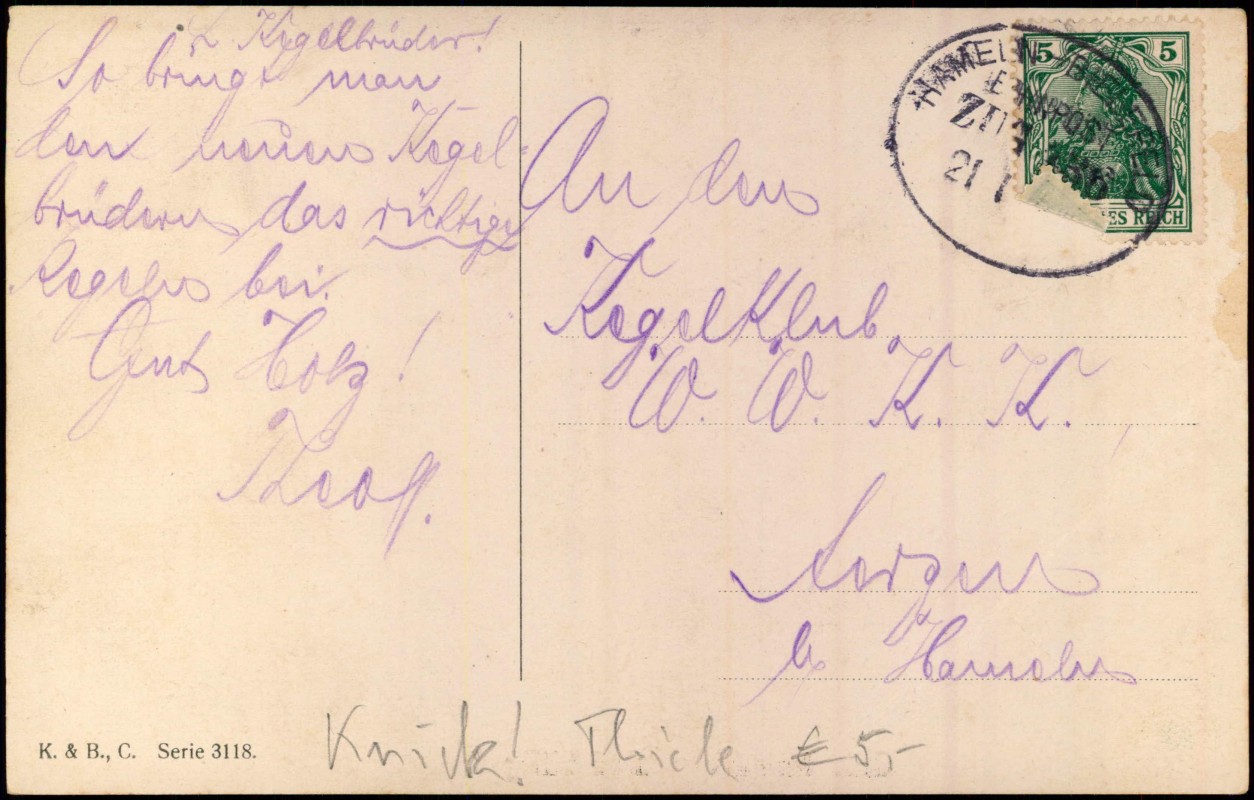 L. Kegelbrüder!
So bringt man
den neuen Kegel-
brüdern das richtige
Kegeln bei.
Gut Holz!
An den
Kegelklub
W. W. K. K.
b/ Hameln
HAMELN
BAHNPOST
ZUG
21
5 5
ES REICH
K. & B., C. Serie 3118.
Knick! Thiele € 5,-